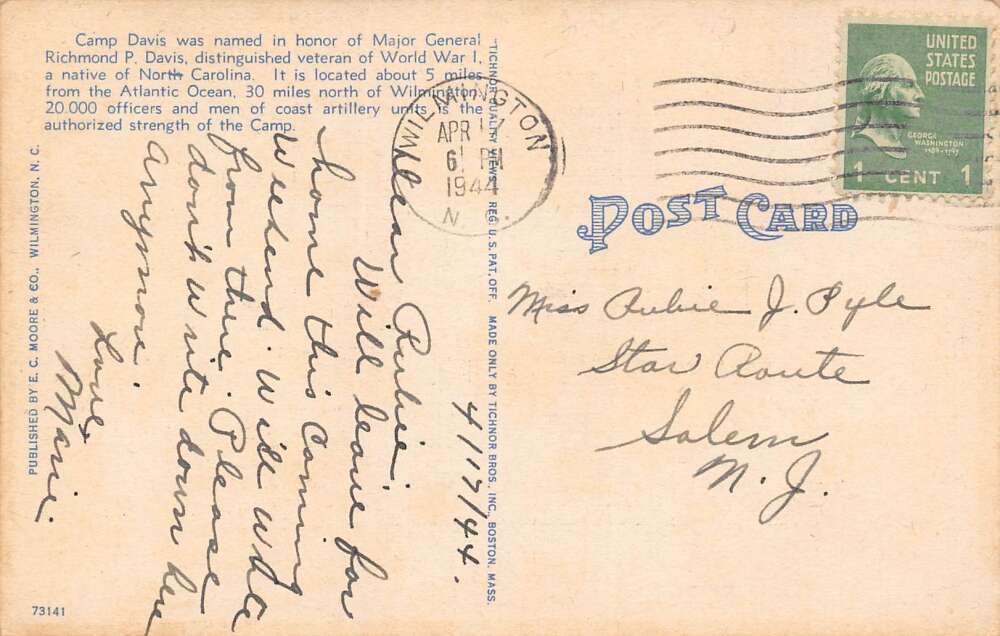 Camp Davis was named in honor of Major General
Richmond P. Davis, distinguished veteran of World War I,
a native of North Carolina. It is located about 5 miles
from the Atlantic Ocean, 30 miles north of Wilmington.
20.000 officers and men of coast artillery units is the
authorized strength of the Camp.
4/17/44.
Dear Rubie,
Will leave for
home this coming
Weekend. Will write
from there. Please
don't write down here
anymore.
Love,
Marie.
PUBLISHED BY E. C. MOORE & CO., WILMINGTON, N. C.
73141
"TICHNOR QUALITY VIEWS," REG. U. S. PAT. OFF. MADE ONLY BY TICHNOR BROS., INC., BOSTON, MASS.
WILMINGTON
APR 17
6 PM
1944
N. C.
UNITED
STATES
POSTAGE
GEORGE
WASHINGTON
1789-1797
1 CENT 1
POST CARD
Miss Rubie J. Pyle
Star Route
Salem
N. J.